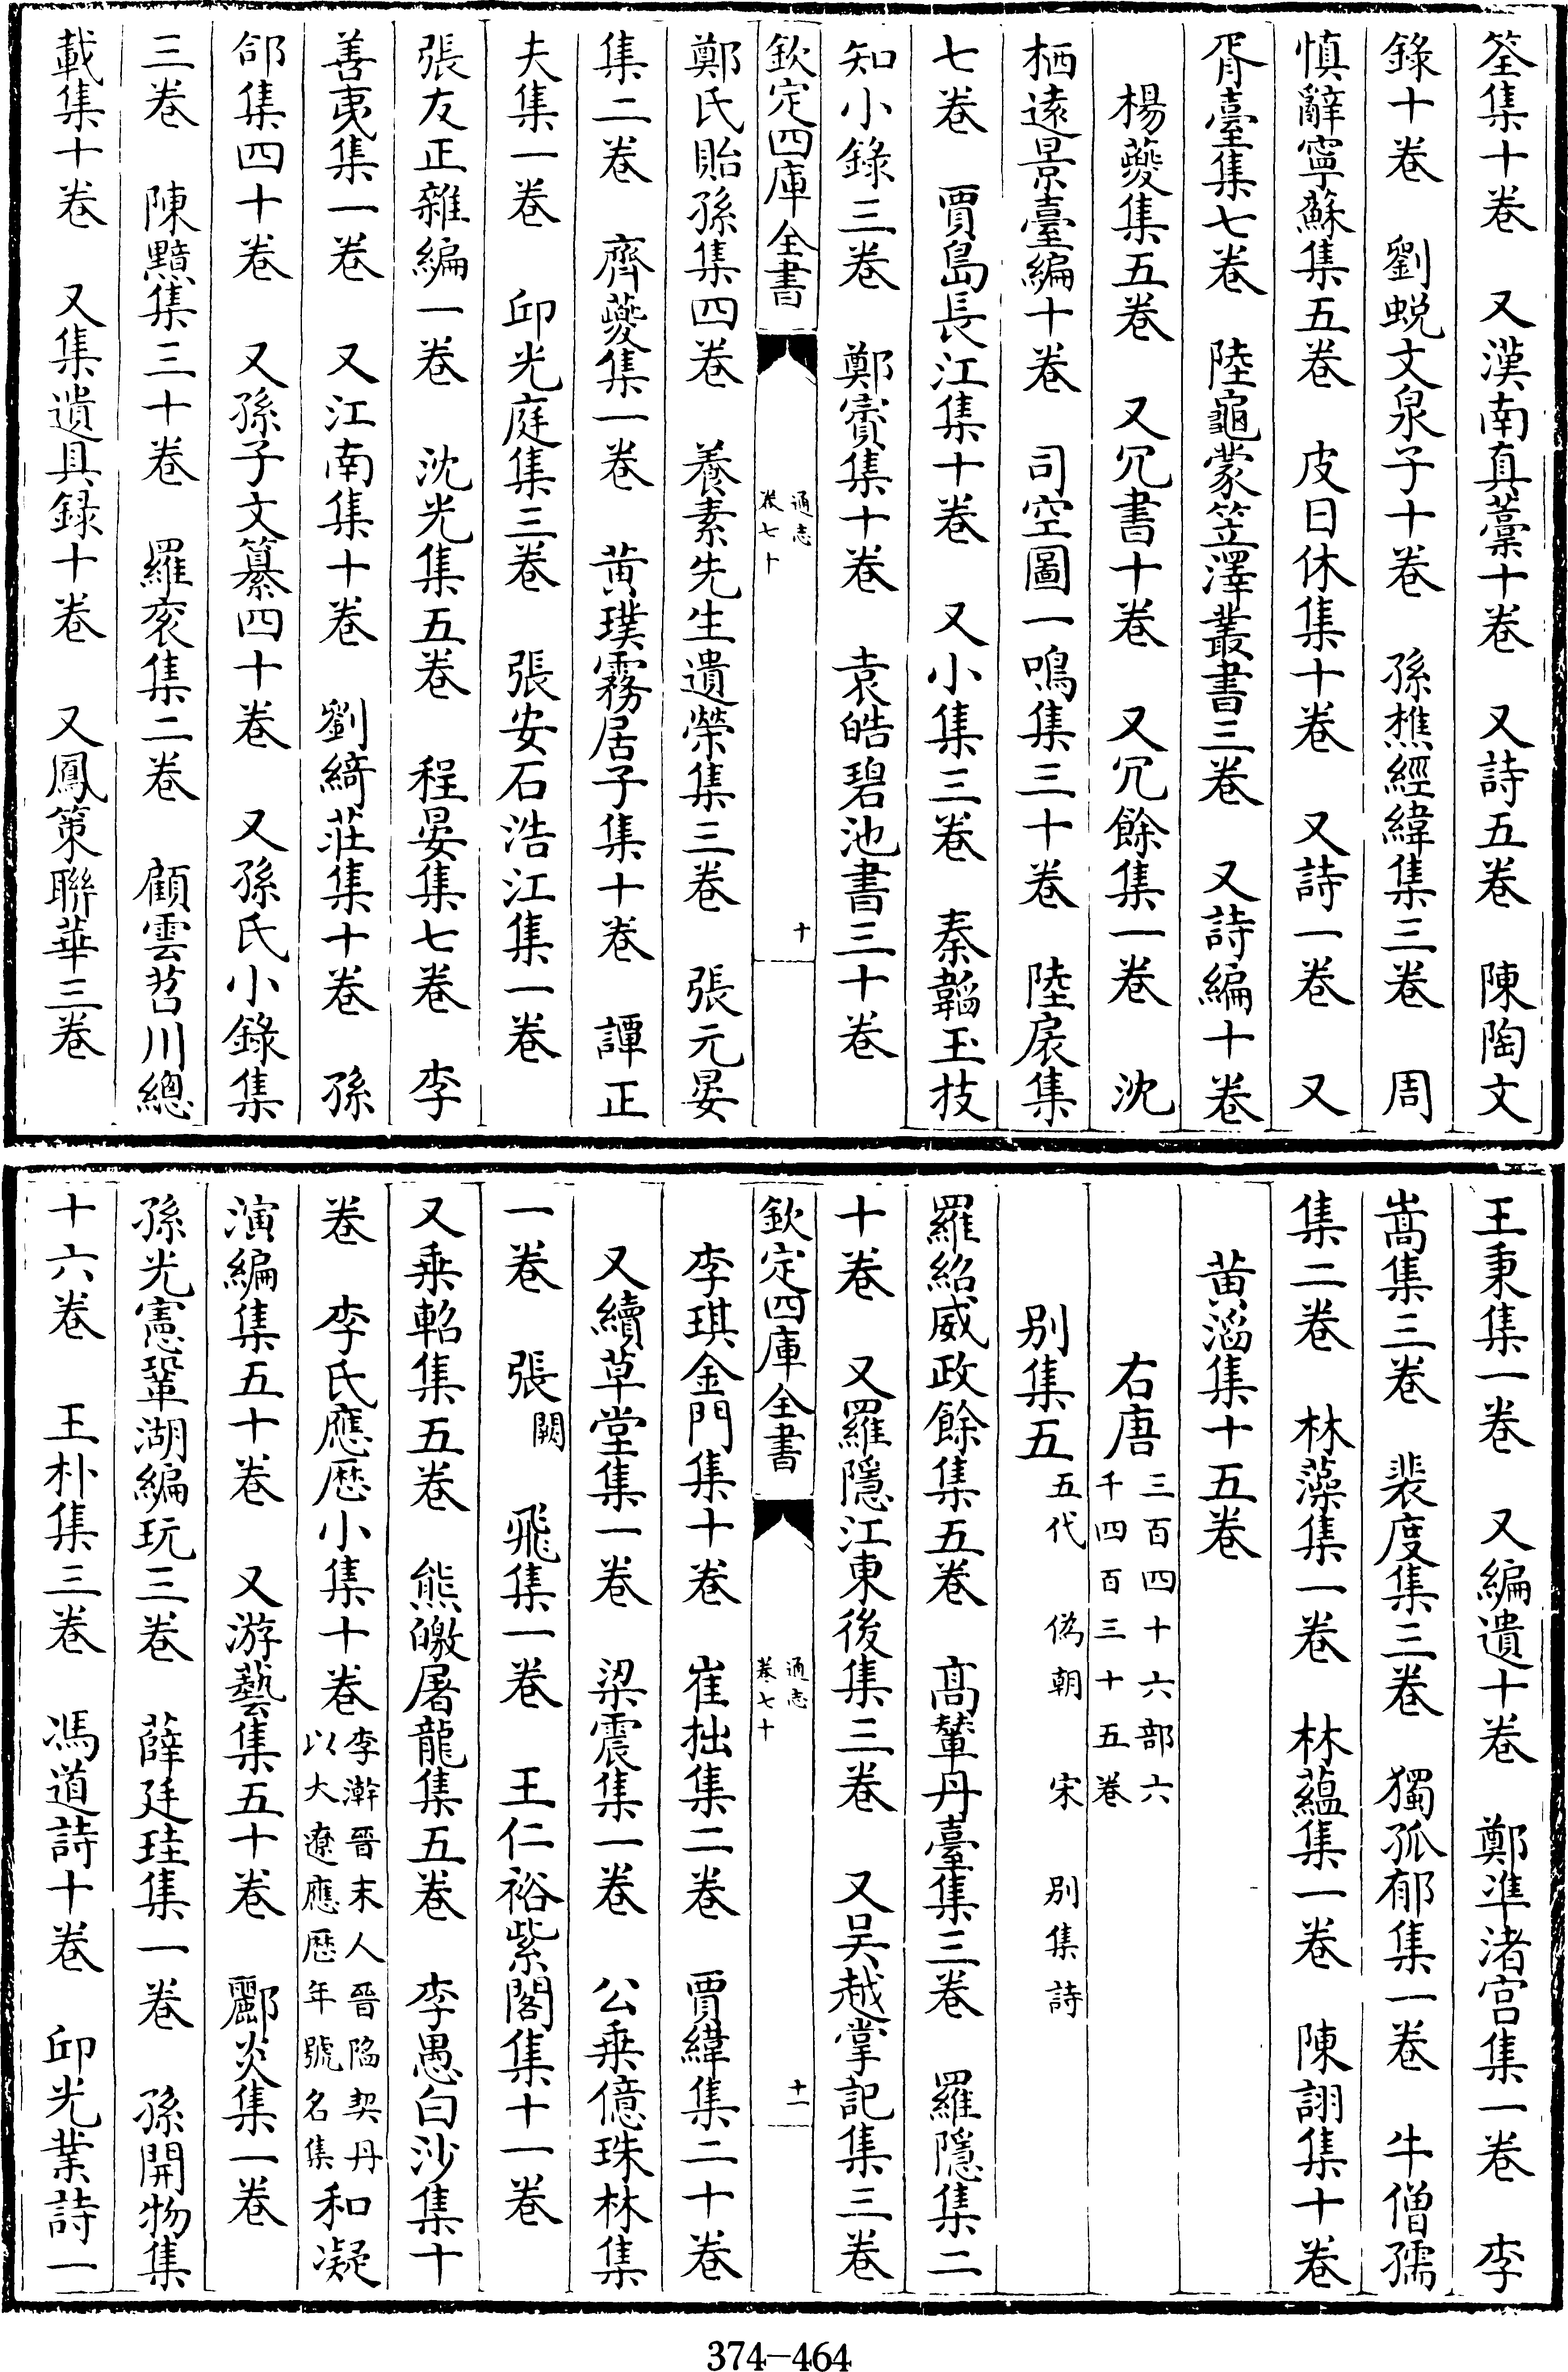 筌集十卷　又漢南真藁十卷　又詩五卷　陳陶文
錄十卷　劉蛻文泉子十卷　孫樵經緯集三卷　周
慎辭寧蘇集五卷　皮日休集十卷　又詩一卷　又
胥臺集七卷　陸龜蒙笠澤叢書三卷　又詩編十卷
楊夔集五卷　又冗書十卷　又冗餘集一卷　沈
栖遠景臺編十卷　司空圖一鳴集三十卷　陸扆集
七卷　賈島長江集十卷　又小集三卷　秦韜玉投
知小錄三卷　鄭賨集十卷　袁皓碧池書三十卷
欽定四庫全書　通志卷七十　十
鄭氏貽孫集四卷　養素先生遺榮集三卷　張元晏
集二卷　齊夔集一卷　黃璞霧居子集十卷　譚正
夫集一卷　邱光庭集三卷　張安石浩江集一卷
張友正雜編一卷　沈光集五卷　程晏集七卷　李
善夷集一卷　又江南集十卷　劉綺莊集十卷　孫
郃集四十卷　又孫子文纂四十卷　又孫氏小錄集
三卷　陳黯集三十卷　羅衮集二卷　顧雲苕川總
載集十卷　又集遺具録十卷　又鳳策聯華三卷
王秉集一卷　又編遺十卷　鄭準渚宫集一卷　李
嵩集三卷　裴度集三卷　獨孤郁集一卷　牛僧孺
集二卷　林藻集一卷　林蘊集一卷　陳詡集十卷
黃滔集十五卷
右唐三百四十六部六千四百三十五卷
别集五五代　偽朝　宋　别集詩
羅紹威政餘集五卷　高輦丹臺集三卷　羅隱集二
十卷　又羅隱江東後集三卷　又吴越掌記集三卷
欽定四庫全書　通志卷七十　十一
李琪金門集十卷　崔拙集二卷　賈緯集二十卷
又續草堂集一卷　梁震集一卷　公乘億珠林集
一卷　張闕飛集一卷　王仁裕紫閣集十一卷
又乘軺集五卷　熊皦屠龍集五卷　李愚白沙集十
卷　李氏應歷小集十卷李澣晉末人晉陷契丹以大遼應歷年號名集和凝
演編集五十卷　又游藝集五十卷　酈炎集一卷
孫光憲鞏湖編玩三卷　薛廷珪集一卷　孫開物集
十六卷　王朴集三卷　馮道詩十卷　邱光業詩一
374-464